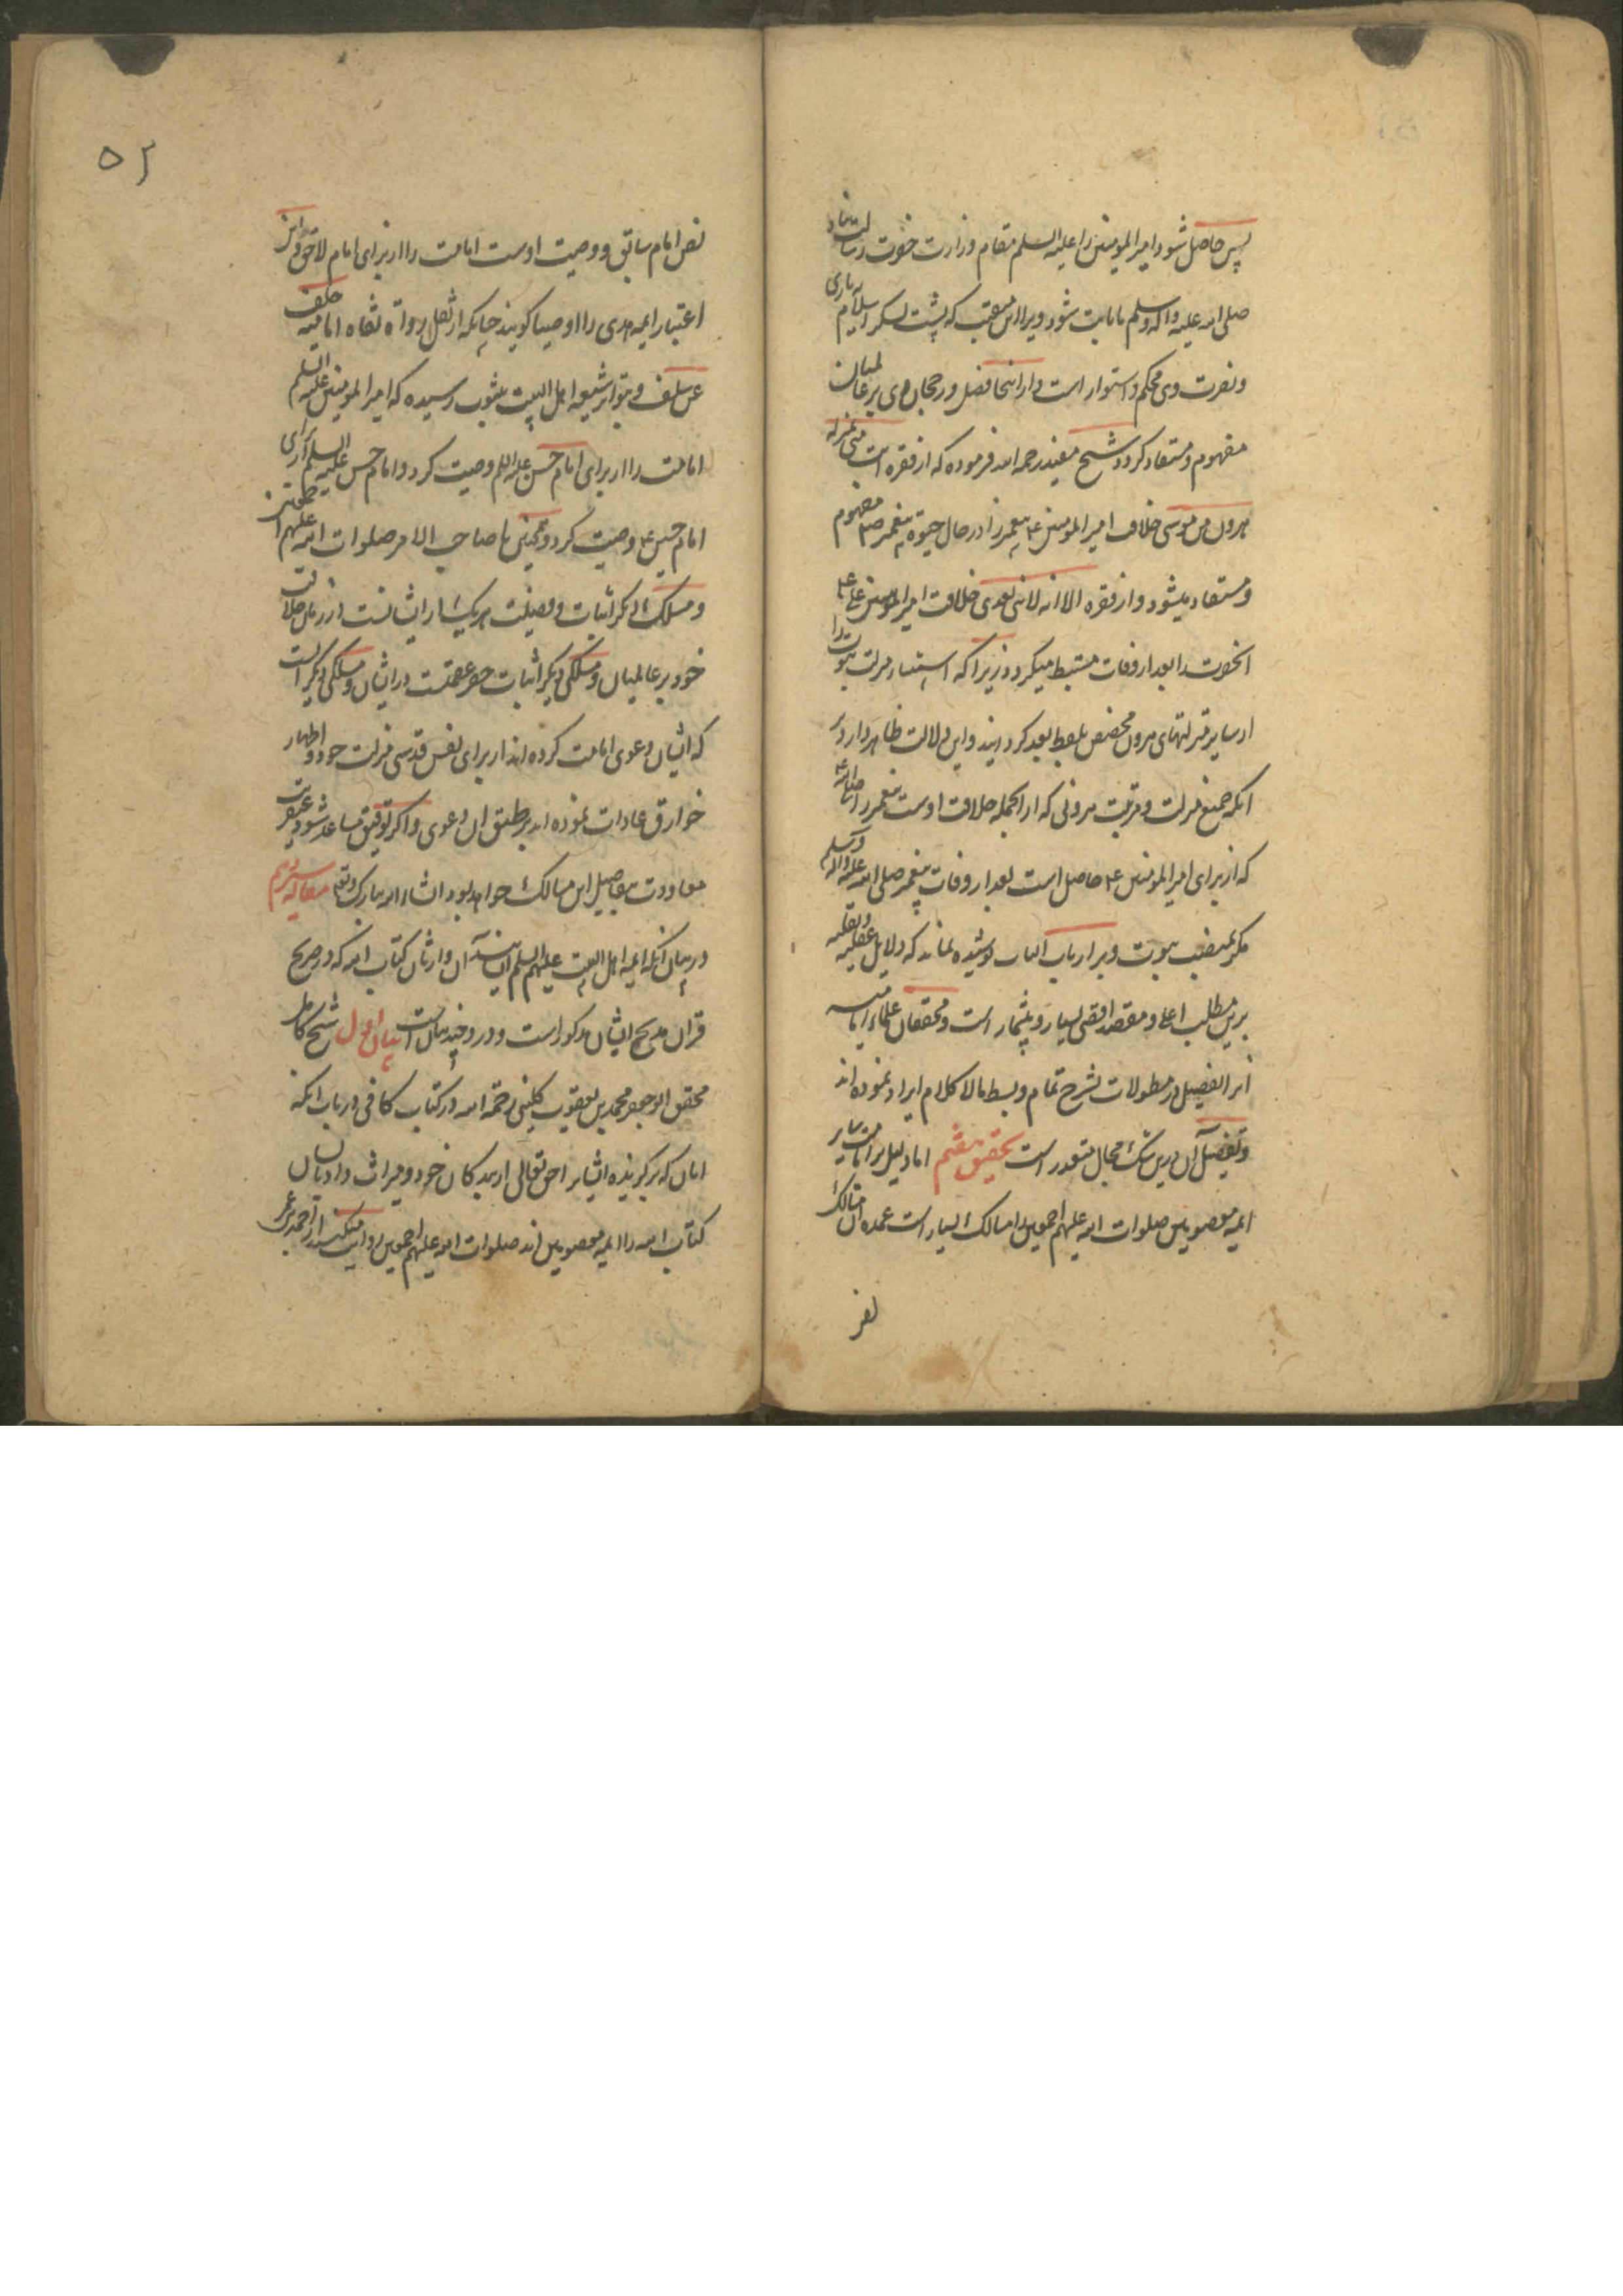 پس حاصل شود امیر المومنین را علیه السلم مقام وزارت حضرت رسالت پناه
صلی الله علیه واله وسلم تا ثابت شود ویرا این منقبت که پشت لسکر اسلام به یاری
ونصرت وی محکم و استوار است و از اینجا فضل و رجحان وی بر عالمیان
مفهوم و مستفاد کردد شیخ مفید رحمه الله فرموده که از فقره انت منی بمنزله
هرون من موسی خلافت امیر المومنین ع پیغمبر را در حال حیوة پیغمبر ص مفهوم
و مستفاد میشود و از فقره الا انه لا نبی بعدی خلافت امیر المومنین علی ع
انحضرت را بعد از وفات مستنبط میکردد زیرا که استثناء مرتبت نبوت را
از سایر منزلتهای هرون مخصص بلفظ بعد کردانیند واین دلالت ظاهر دارد بر
انکه جمیع منزلت و مرتبت هرونی که از انجمله خلافت اوست پیغمبر را
که از برای امیر المومنین ع حاصل است بعد از وفات پیغمبر صلی الله علیه واله وسلم
مکر منصب نبوت و بر ارباب الباب پوشیده نماند که دلایل عقلیه ونقلیه
برین مطلب اعلی و مقصد اقصی بسیار و بیشمار است و محققان علماء امامیه
انرا بتفصیل در مطولات بشرح تمام و بسط مالا کلام ایراد نموده اند
و تفصیل آن درین تنک مجال متعذر است تحقیق هفتم اما دلیل بر امامت سایر
ایمه معصومین صلوات الله علیهم اجمعین را مسالک بسیار است عمده آن مسالک
نص
۵۲
نص امام سابق و وصیت اوست امامت را از برای امام لاحق و ازین
اعتبار ایمه هدی را اوصیا کویند چنانکه از نقل رواة ثقاه امامیه خلف
عن سلف و بتواتر شیعه اهل البیت بثبوت رسیده که امیر المومنین علیه السلم
امامت را از برای امام حسن علیه السلم وصیت کرد و امام حسن علیه السلم از برای
امام حسین ع وصیت کرد و همچنین تا صاحب الامر صلوات الله علیهم
و مسلک دیکر اثبات و فضیلت هر یک از ایشانست در زمان خلافت
خود بر عالمیان و مسلکی دیکر اثبات حصر عصمتست در ایشان و مسلکی دیکر انست
که ایشان دعوی امامت کرده اند از برای نفس قدسی منزلت خود و اظهار
خوارق عادات نموده اند بر طبق ان دعوی و اکر توفیق مساعد شود
معاودت بتفاصیل این مسالک خواهد بود انشاء الله تبارک وتع مقاله سیزدهم
در بیان انکه ایمه اهل البیت علیهم السلم ایشانند آن وارثان کتاب الله که در صریح
قران مدح ایشان مذکور است و درو چند بیانست بیان اول شیخ کامل
محقق ابو جعفر محمد بن یعقوب کلینی رحمه الله در کتاب کافی در باب انکه
انان که برکزیده ایشانرا حق تعالی از بندکان خود و میراث داد بایشان
کتاب الله را ایمه معصومین اند صلوات الله علیهم اجمعین روایت میکند از احمد بن عمر